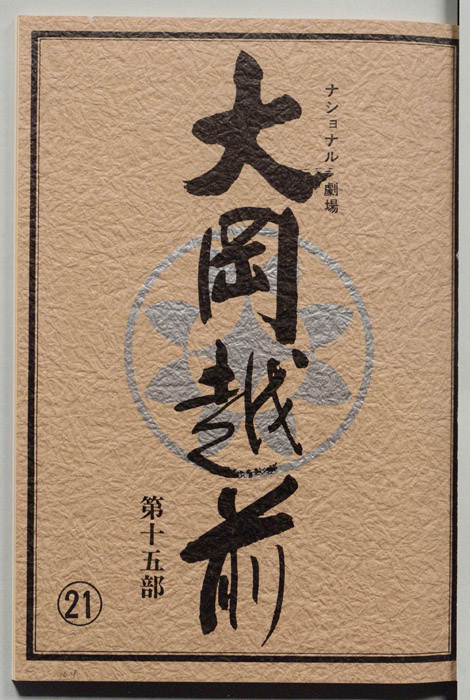 ナショナル劇場
大岡越前
第十五部
21